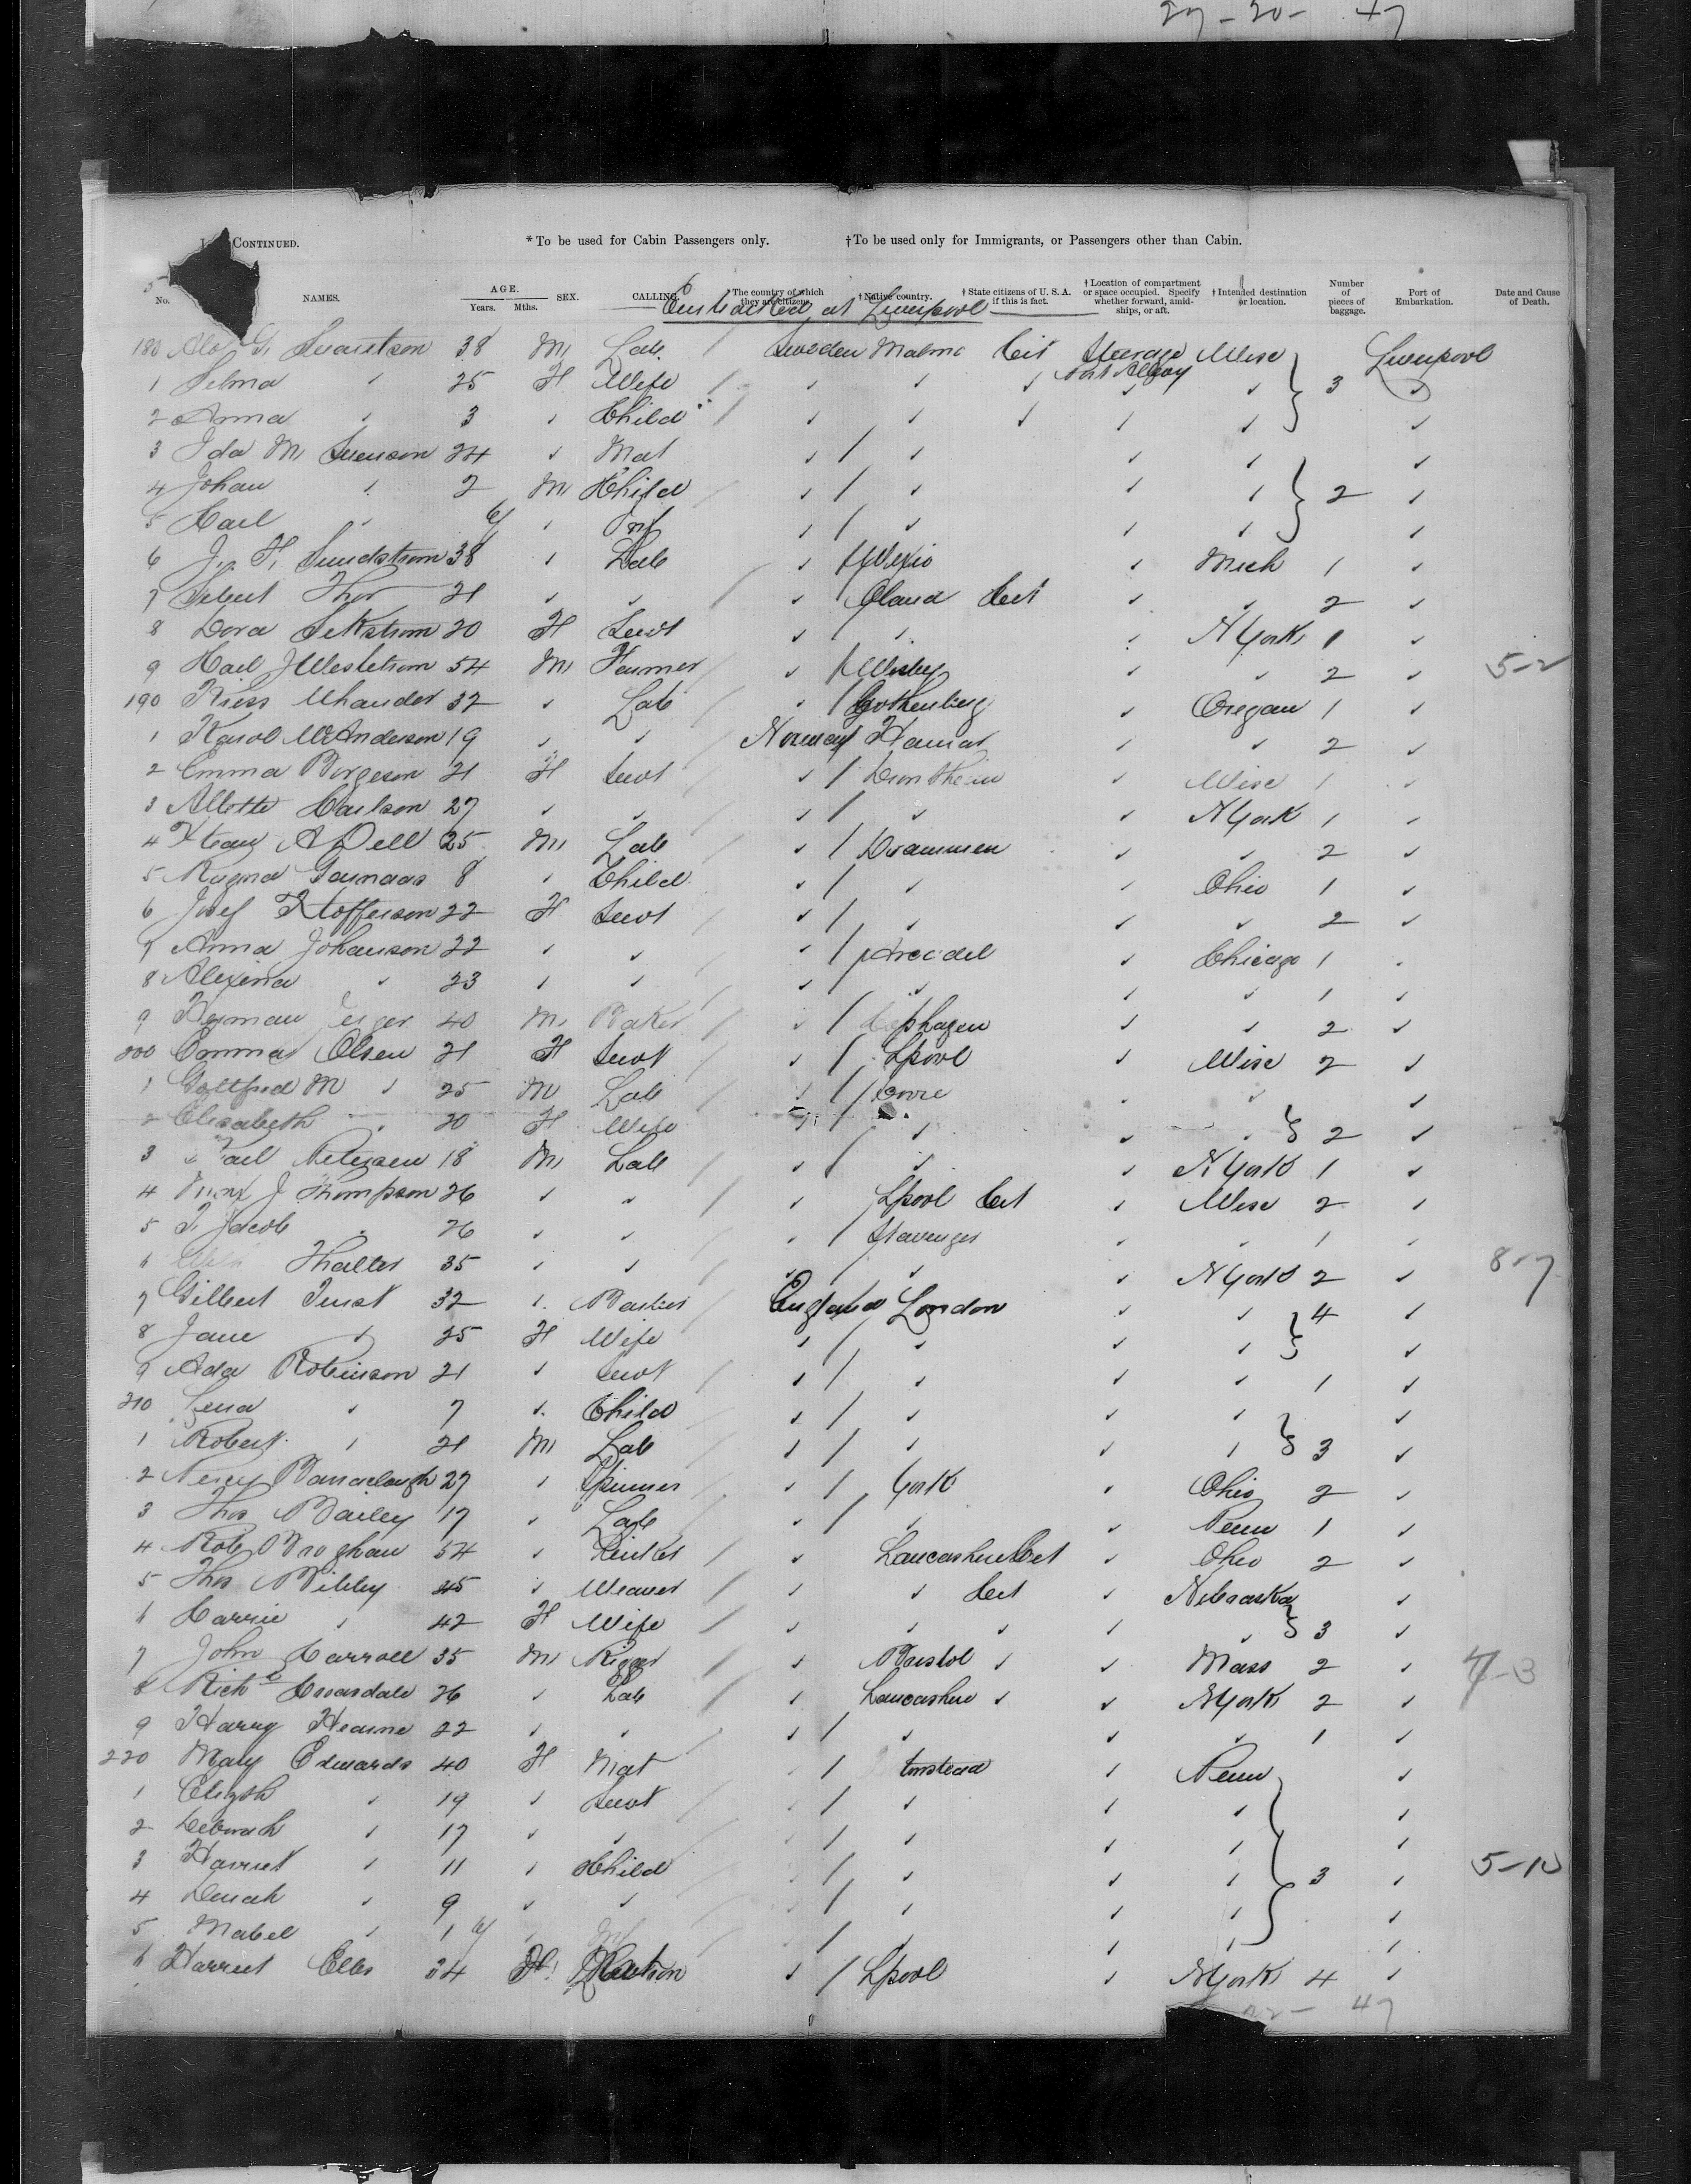 27-20- 47
CONTINUED. *To be used for Cabin Passengers only. †To be used only for Immigrants, or Passengers other than Cabin.
No. NAMES. AGE. Years. Mths. SEX. CALLING. The country of which they are citizens. †Native country. †State citizens of U. S. A. if this is fact. †Location of compartment or space occupied. Specify whether forward, amidships, or aft. †Intended destination or location. Number of pieces of baggage. Port of Embarkation. Date and Cause of Death.
Embarked at Liverpool
180 Alof G. Swanson 38 M Lab / Sweden Malmo Cit Steerage Wisc Liverpool
1 Selma " 25 F Wife / " " " " " 3 "
2 Anna " 3 " Child / " " " " " "
3 Ida M Svenson 24 " Mat " / " " " "
4 Johan " 2 M Child / " / " " " 2 "
5 Carl " 6/ " Inf " / " " " "
6 J. F. Sundstrom 38 " Lab " / Wexio " Mich 1 "
7 Thor 21 " " / " Oland Cit " " 2 "
8 Dora Sekstrom 20 F Servt " / " " N York 1 "
9 Carl J Westetrom 54 M Farmer " / Wisby " " 2 " 5-2
190 32 " Lab / " / Gothenberg " Oregan 1 "
1 Karol W Anderson 19 " " Norway Hamar " " 2 "
2 Emma Borgeson 21 F Servt / " / Dronthein " Wisc 1 "
3 Allotte Carlson 27 " " " / " " N York 1 "
4 25 M Lab " / Drammen " " 2 "
5 Magna 8 " Child " / " " Ohio 1 "
6 Josef Kstofferson 22 F Servt / " / " " " 2 "
7 Anna Johanson 22 " " / " / Arendel " Chicago 1 "
8 Alexina " 23 " " / " / " " " 1 "
9 Herman 40 M Baker / " / Cophagen " " 2 "
200 Emma Olsen 21 F Servt " / Lpool " Wisc 2 "
1 Gottfried M " 25 M Lab " / " " "
2 Elizabeth " 20 F Wife " / " " " 2 "
3 Carl Petersen 18 M Lab / " / " " N York 1 "
4 J Thompson 26 " " / " Lpool Cit " Wisc 2 "
5 T. Jacob " 26 " " " / Stavenger " " 1 "
6 Thaller 35 " " / " / " " N York 2 " 8-7
7 Gilbert 32 " Barber / England London " " 4 "
8 Jane " 25 F Wife " / " " " "
9 Ada Robinson 21 " Servt / " / " " " 1 "
210 Lena " 7 " Child " / " " " "
1 Robert " 21 M Lab " / " " " 3 "
2 Percy Barraclough 27 " Spinner " / York " Ohio 2 "
3 Thos Bailey 17 " Lab " / " " Penn 1 "
4 Robt Broghan 54 " / " Lancashire Cit " Ohio 2 "
5 Thos Bibby 45 " Weaver / " " Cit " Nebraska "
6 Carrie " 42 F Wife / " " " " " 3 "
7 John Carroll 35 M Rigger " Bristol " " Mass 2 " 7-3
8 Richd Croasdale 26 " Lab / " Lancashire " " N York 2 "
9 Harry Hearne 22 " " " / " " " 1 "
220 Mary Edwards 40 F Mat / " Penn "
1 Elizbh " 19 " Servt / / " " " "
2 Deborah " 17 " " / " " "
3 Harriet " 11 " Child / " " " 3 " 5-10
4 Dinah " 9 " " / " " " "
5 Mabel " 1 6/ " Inf / " " " "
6 Harriet Ellis 34 F " / Lpool " N York 4 "
47